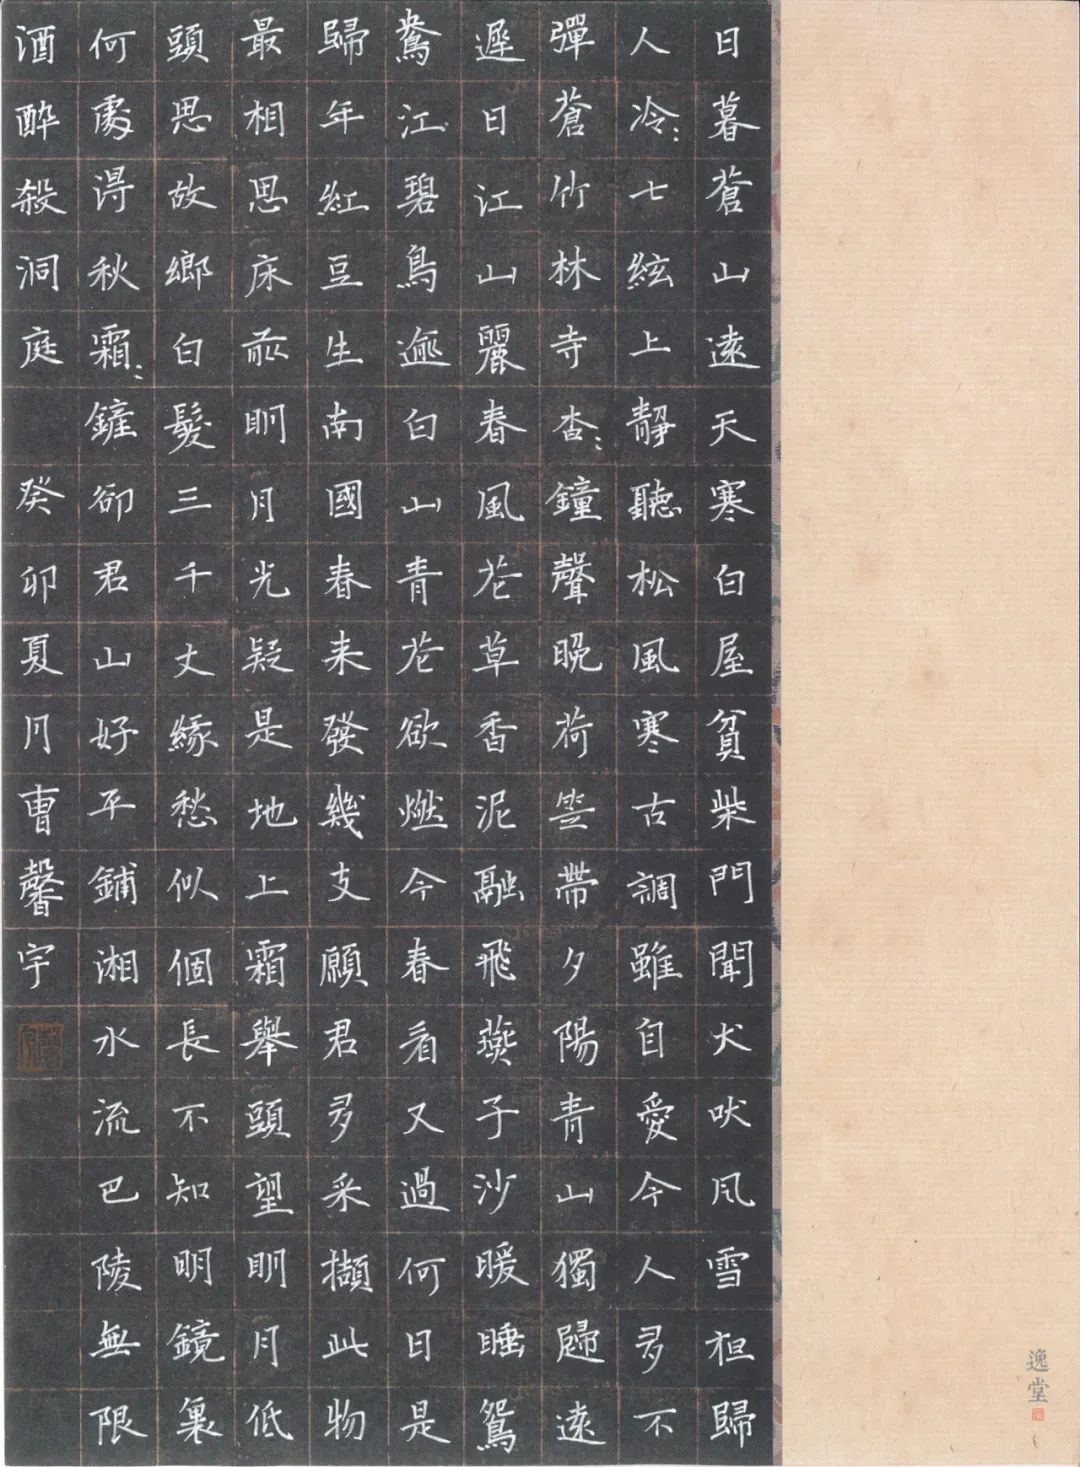 日暮蒼山遠天寒白屋貧柴門聞犬吠風雪夜歸
人冷:七絃上靜聽松風寒古調雖自愛今人多不
彈蒼竹林寺杳:鐘聲晚荷笠帶夕陽青山獨歸遠
遲日江山麗春風花草香泥融飛燕子沙暖睡鴛
鴦江碧鳥逾白山青花欲燃今春看又過何日是
歸年紅豆生南國春來發幾支願君多采擷此物
最相思床前明月光疑是地上霜舉頭望明月低
頭思故鄉白髮三千丈緣愁似個長不知明鏡裏
何處得秋霜:鏟卻君山好平鋪湘水流巴陵無限
酒醉殺洞庭 癸卯夏月曹馨宇
逸堂